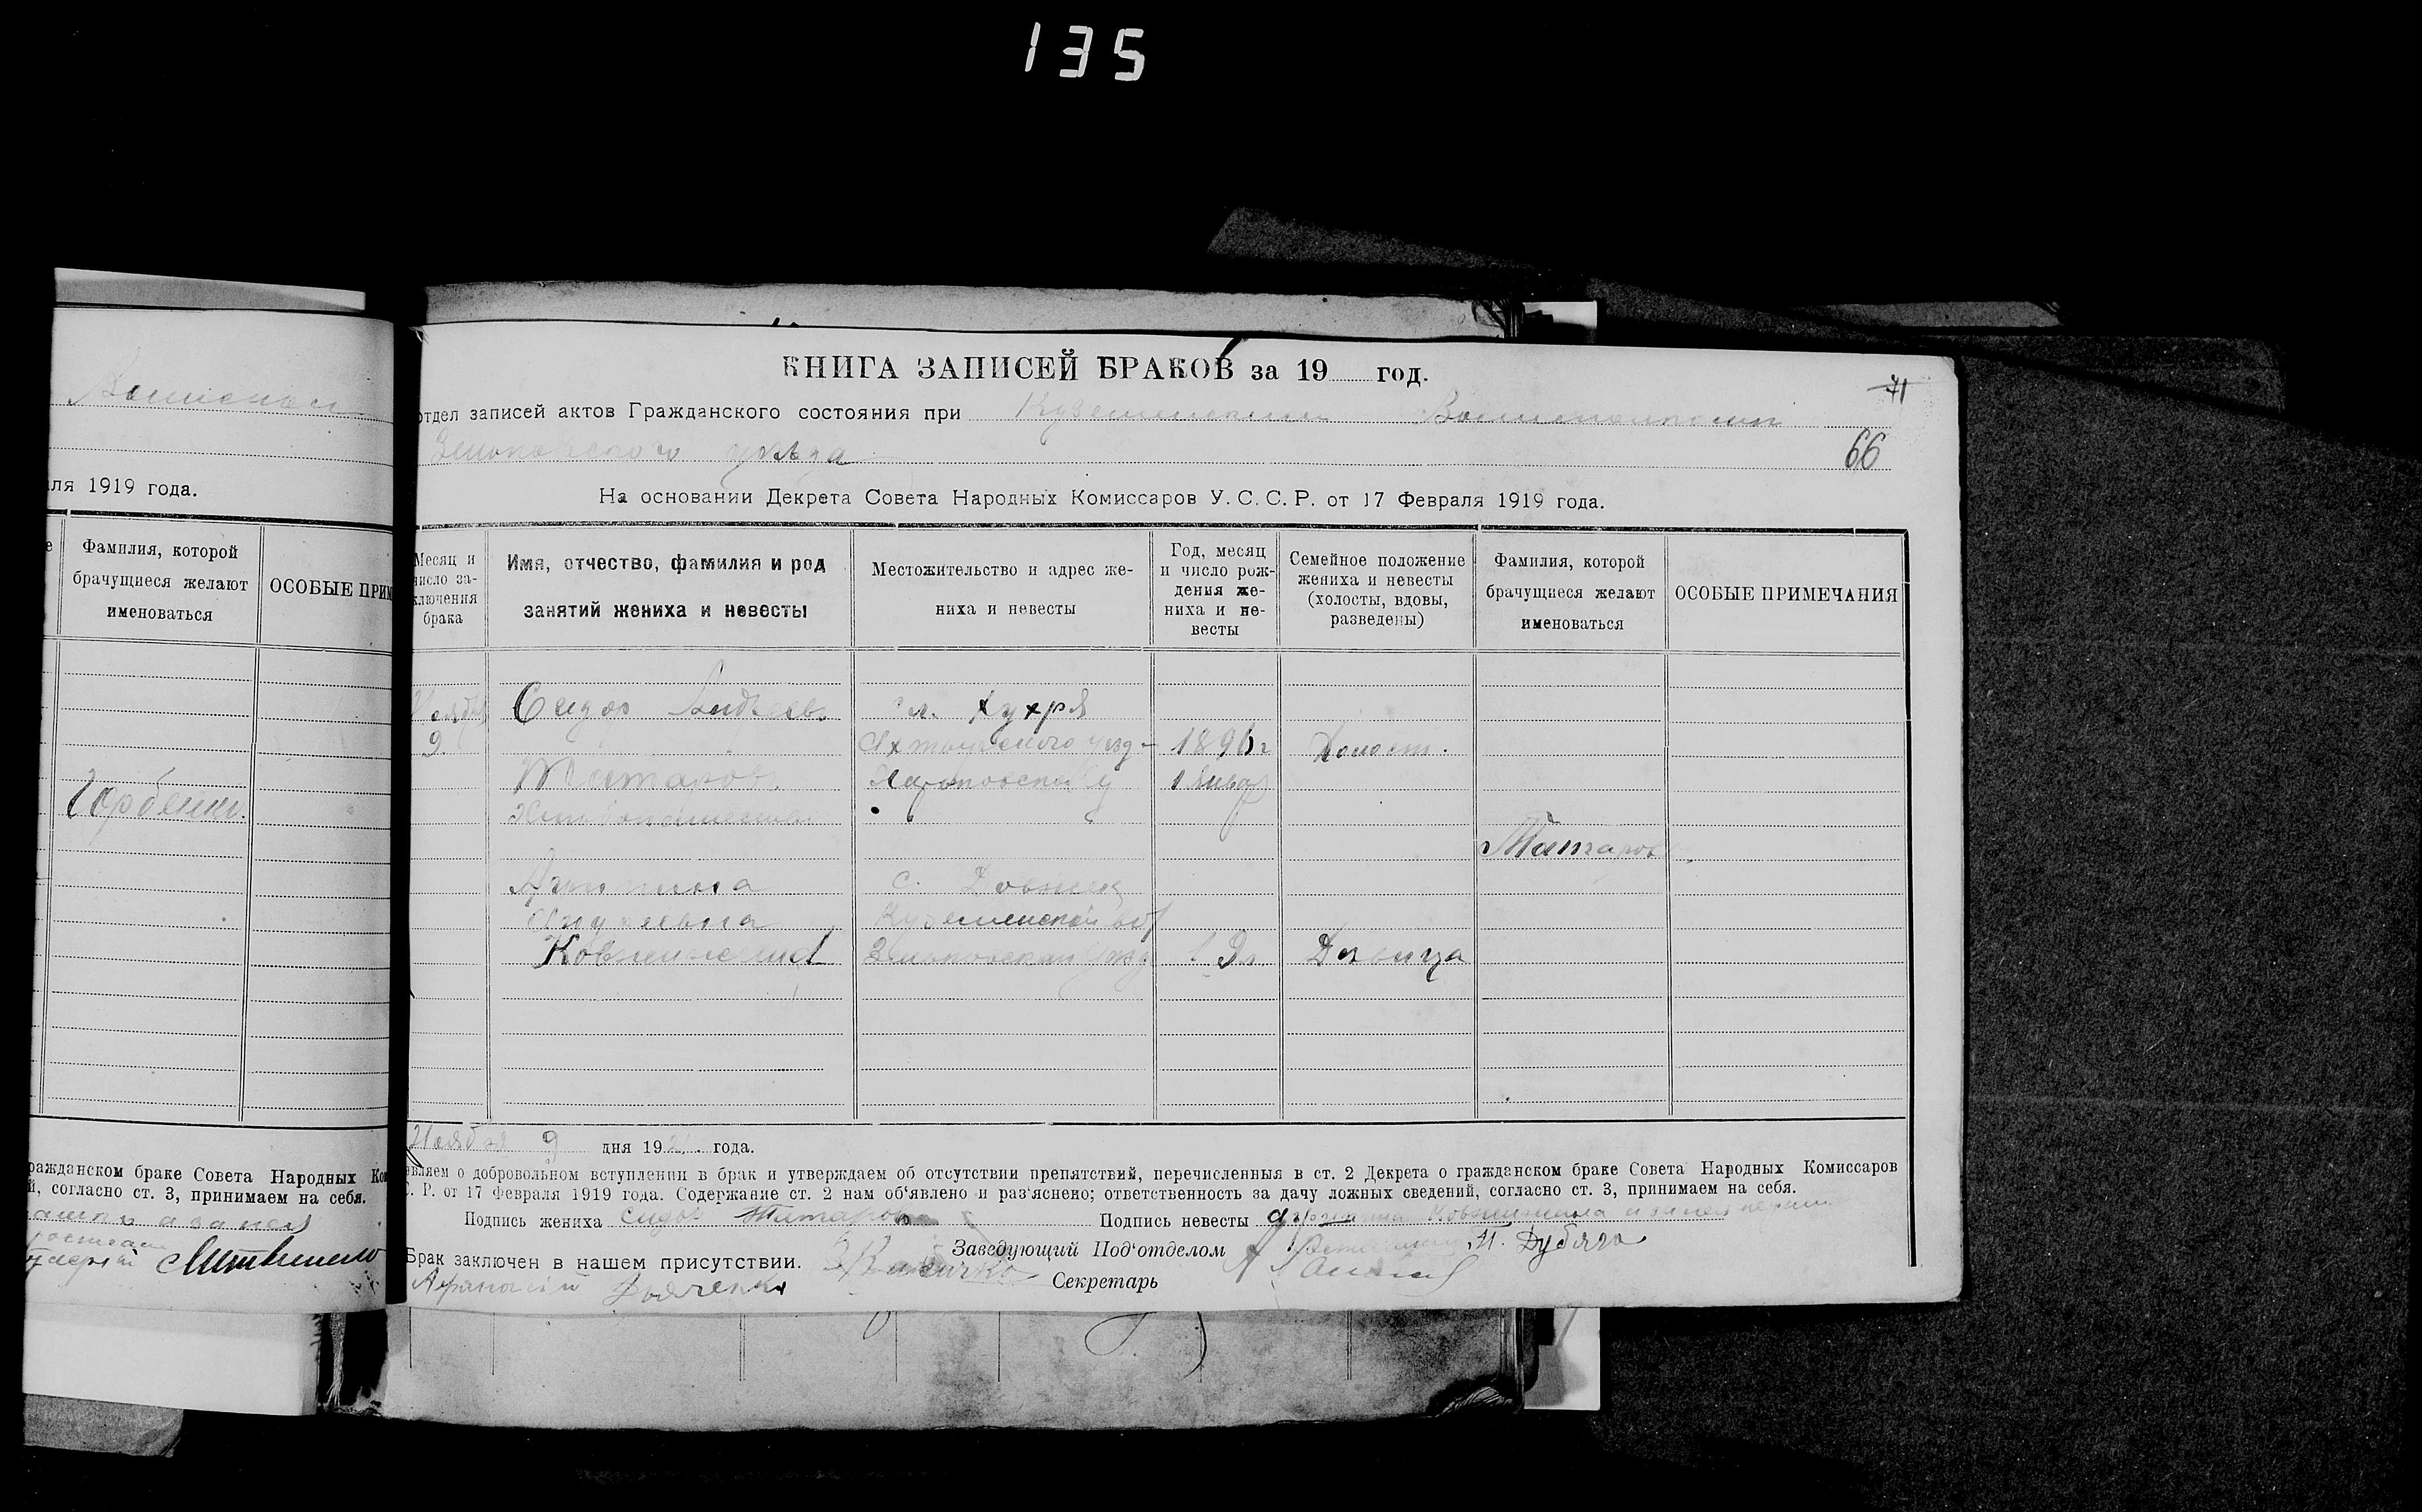 135
ля 1919 года.
Фамилия, которой
брачущиеся желают
именоваться
ОСОБЫЕ ПРИМ
Горбенко.
ражданском браке Совета Народных Ком
й, согласно ст. 3, принимаем на себя.
КНИГА ЗАПИСЕЙ БРАКОВ за 19 год.
71
отдел записей актов Гражданского состояния при Куземинском Волисполкоме
Зеньковского уезда
66
На основании Декрета Совета Народных Комиссаров У. С. С. Р. от 17 Февраля 1919 года.
Месяц и
число за-
ключения
брака
Имя, отчество, фамилия и род
занятий жениха и невесты
Местожительство и адрес же-
ниха и невесты
Год, месяц
и число рож-
дения же-
ниха и не-
весты
Семейное положение
жениха и невесты
(холосты, вдовы,
разведены)
Фамилия, которой
брачущиеся желают
именоваться
ОСОБЫЕ ПРИМЕЧАНИЯ
Ноября
9
Сидор Андреев.
Татаров
Хлебопашество
сл. Хухря
Ахтырского уезд
Харьковской г
1896 г
1 Янва
Холост.
Татаров
Агрипина
Андреевна
Ковжижина
с. Довжик
Куземинской вол
Девица
Ноября 9 дня 1921. года.
вляем о добровольном вступлении в брак и утверждаем об отсутствии препятствий, перечисленныя в ст. 2 Декрета о гражданском браке Совета Народных Комиссаров
С. Р. от 17 Февраля 1919 года. Содержание ст. 2 нам об'явлено и раз'яснено; ответственность за дачу ложных сведений, согласно ст. 3, принимаем на себя.
Подпись жениха Сидор Татаров
Подпись невесты
Заведующий Под'отделом
П. Дубяга
Брак заключен в нашем присутствии.
Афанасий Дьяченко
Секретарь